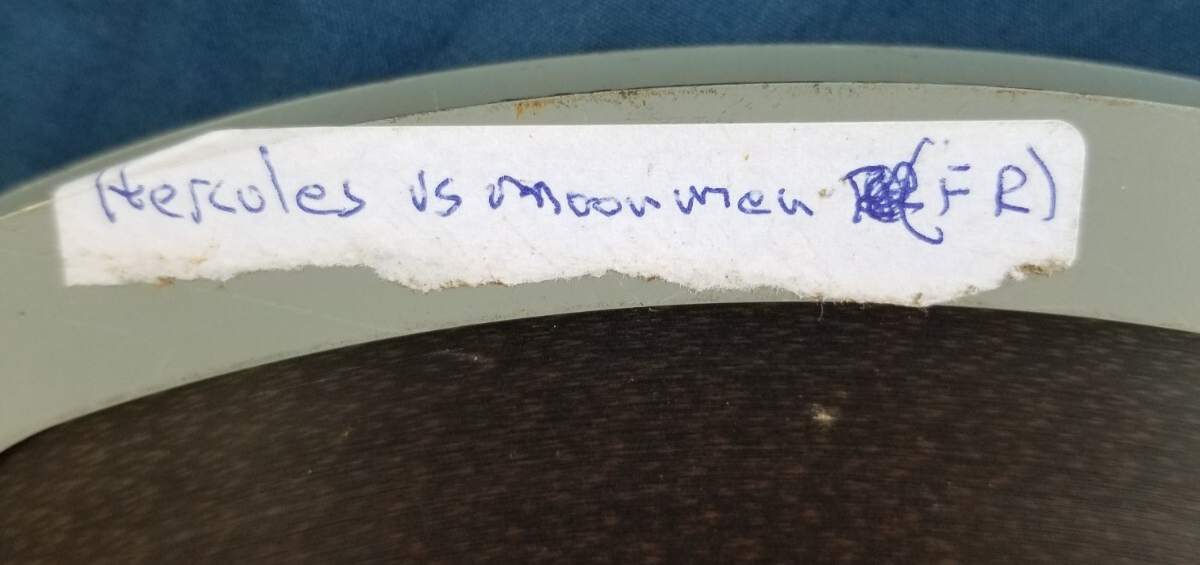 Hercules vs moonmen (FR)